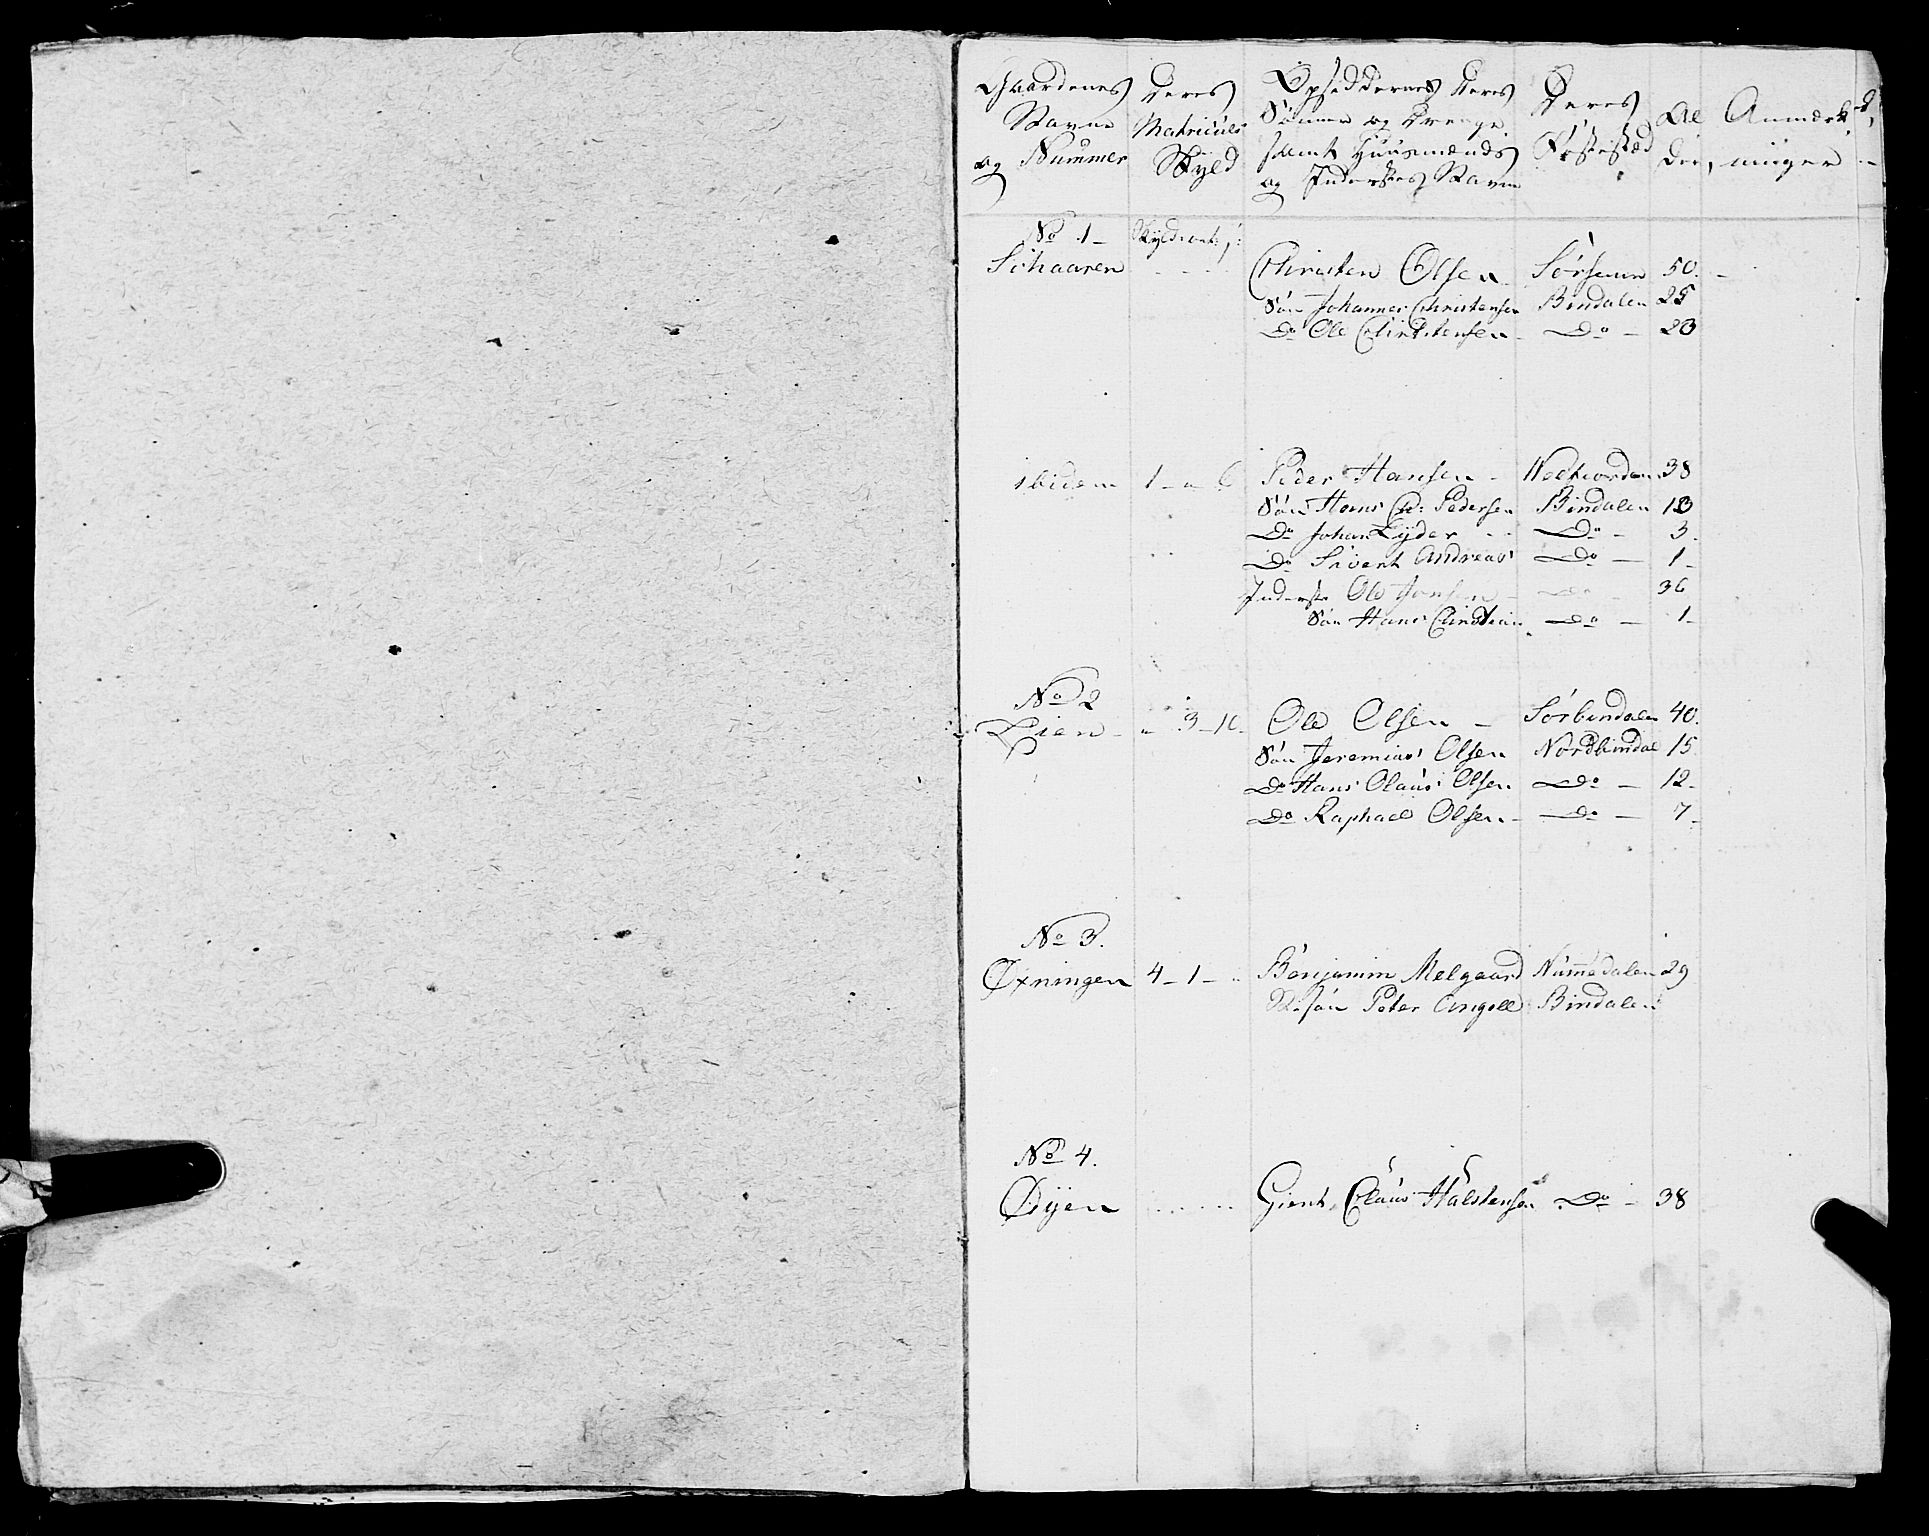 Gaardenes Navne og Nummer | Deres Matriculs Skyld | Opsiddernes deres Sönner og Drenge samt Huusmænds og Inderstes Navne | Deres Födested | Al der, | Anmærk- ninger
No 1 - Skyld
Schaaren Christen Olsen Sörsemn 50.
Sön Johannes Christensen Bindalen 25
Do Ole Christensen - Do - 23
ibidem 1 - " 6 Peder Hansen - 38
Sön Hans Ch: Pedersen Bindalen 13
Do Johan Lyder - - Do - 3.
Do Sivert Andreas Do - 1 -
Inderste Ole Jonsen - Do - 36
Sön Hans Christian Do - 1 -
No 2
Lien - " 3 - 10. Ole Olsen - Sörbindalen 40.
Sön Jeremias Olsen Nordbindal 15.
Do Hans Olaus Olsen Do - 12 -
Do Raphael Olsen - Do - 7 -
No 3.
Øxningen 4 - 1 - " Benjamin Melgaard Nummedalen 29
St. sön Peter Angell Bindalen
No 4.
Øyen Gient. Claus Halstensen Do - 38